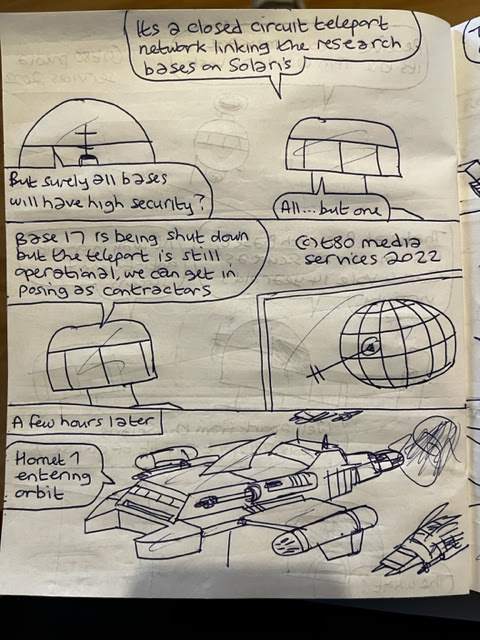 Its a closed circuit teleport
network linking the research
bases on Solaris
But surely all bases
will have high security?
All... but one
Base 17 is being shut down
but the teleport is still
operational, we can get in
posing as contractors
(c) t80 media
services 2022
A few hours later
Hornet 1
entering
orbit